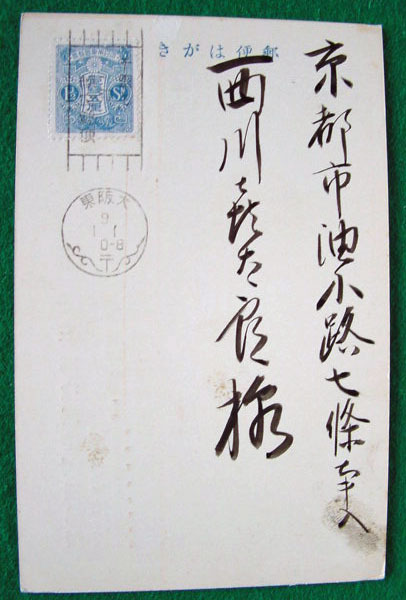 きがは便郵
京都市油小路七條東入
西川喜太郎様
1½ Sn
大阪東
9
1.1
0-8